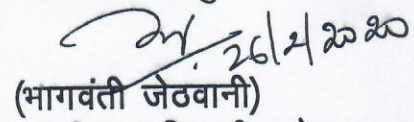 26/2/2020
(भागवंती जेठवानी)